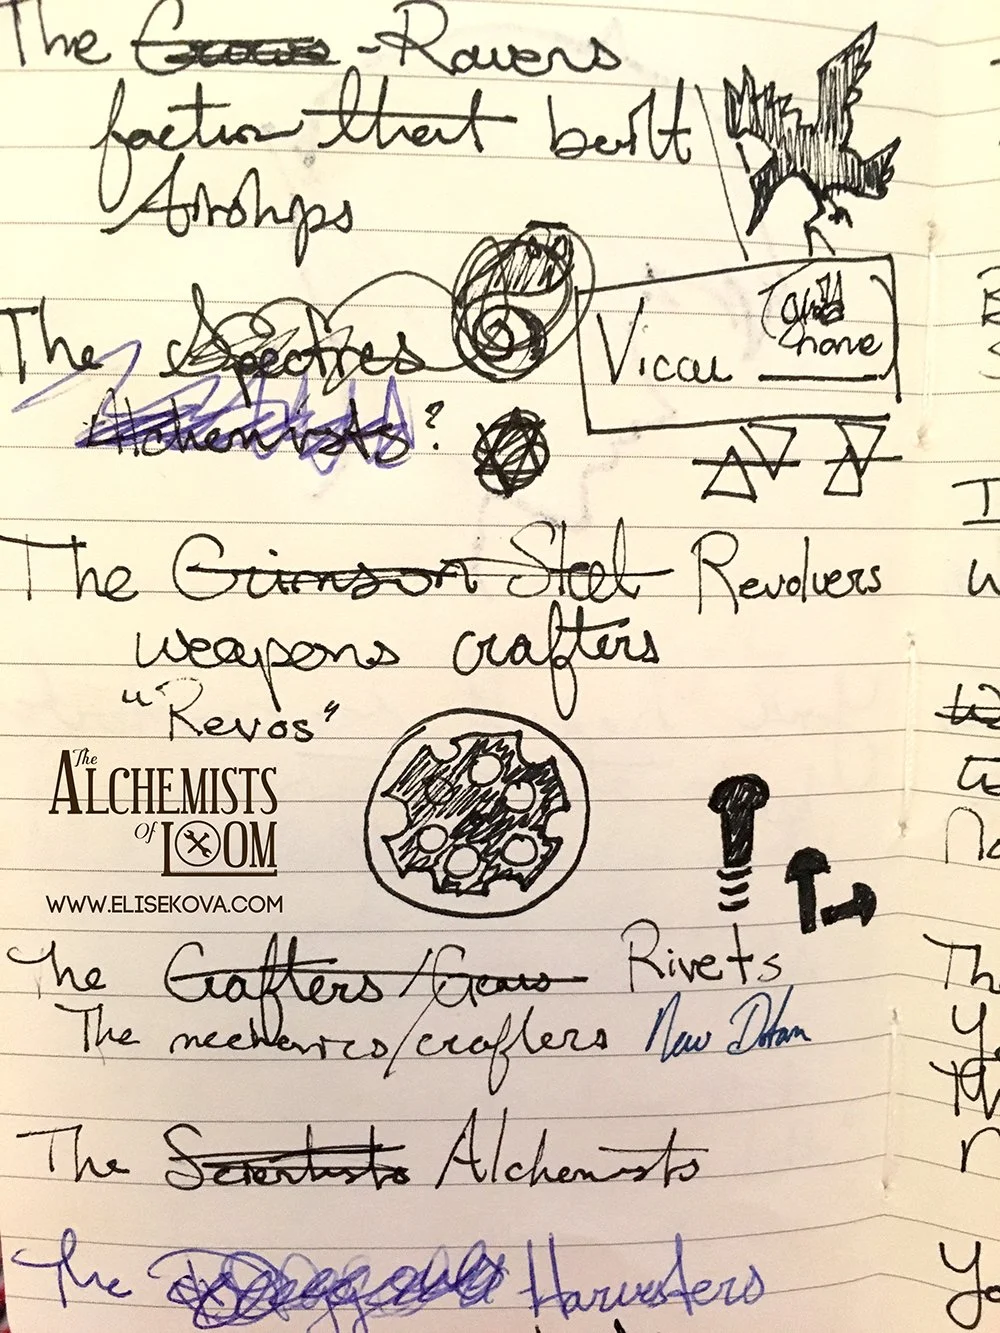 The -Ravens
faction that built
Airships
The Spectres
Alchemists?
Vicar
The Crimson Steel Revolvers
weapons crafters
"Revos"
The
ALCHEMISTS
Of LOOM
WWW.ELISEKOVA.COM
The Crafters/Gears Rivets
The mechanics/crafters New Dotam
The Scientists Alchemists
The Harvesters